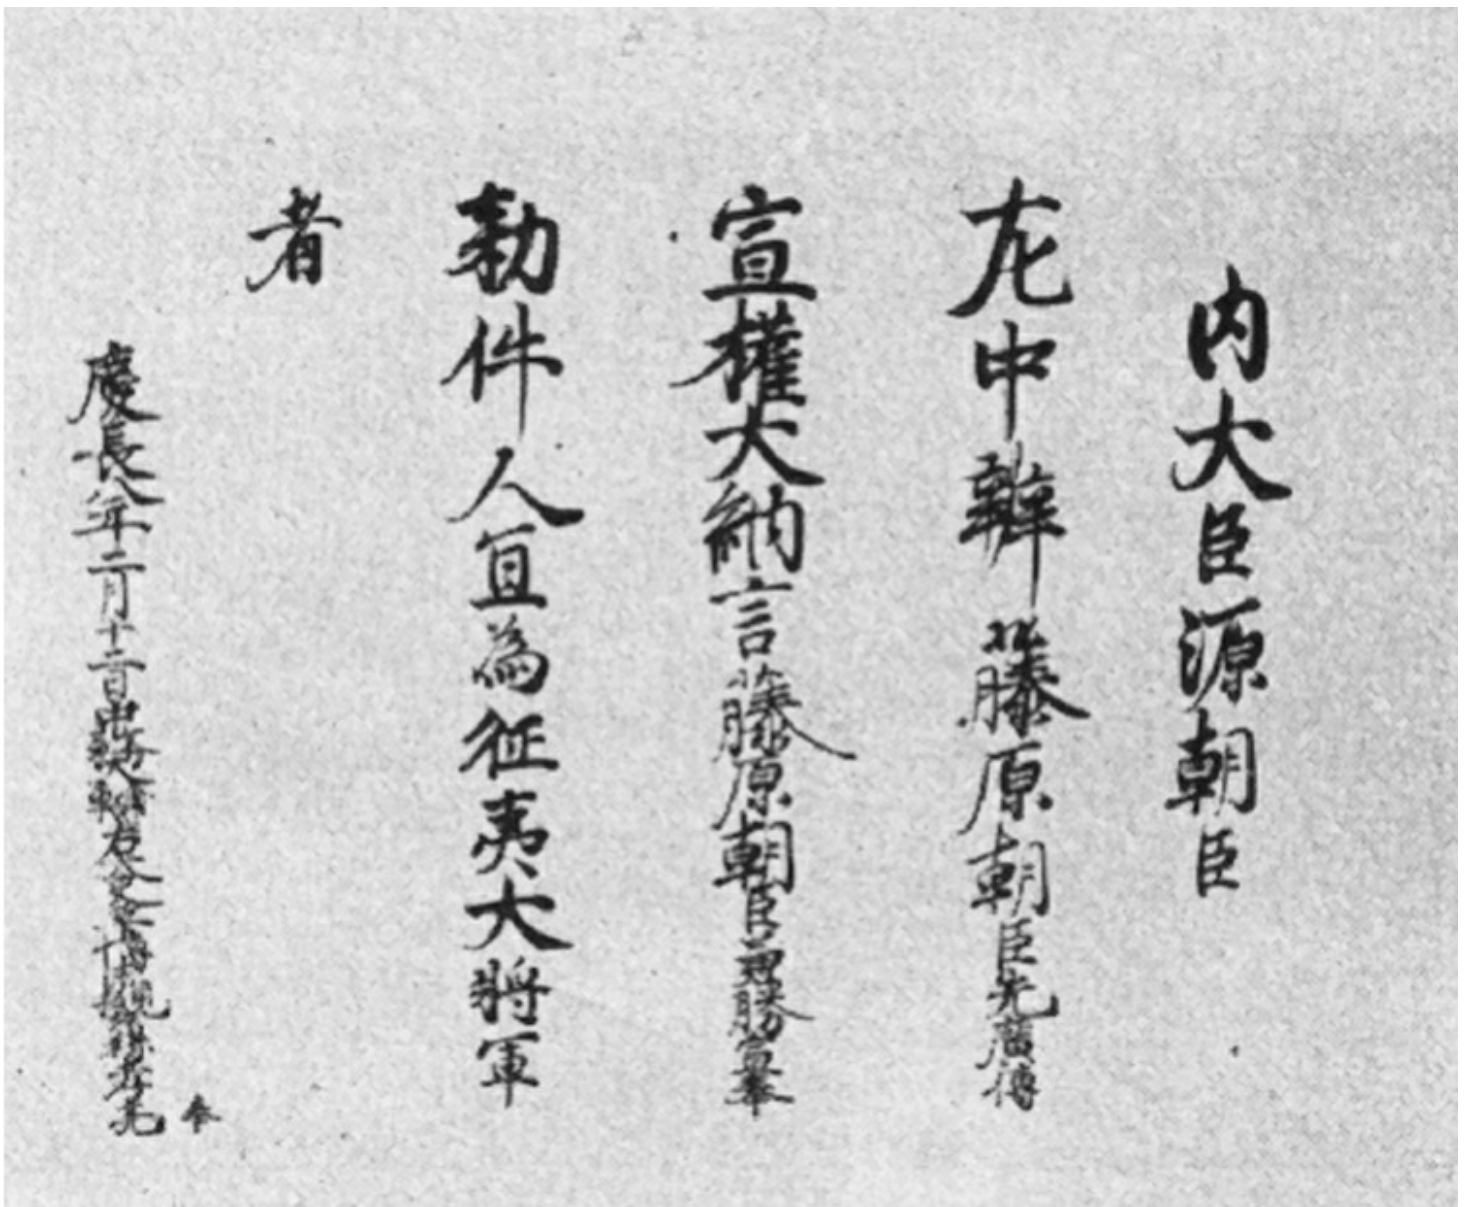 内大臣源朝臣
左中辨藤原朝臣光廣傳
宣權大納言藤原朝臣兼勝宣奉
勅件人宜為征夷大將軍
者
慶長八年二月十二日中務輔博槻宿祢孝亮奉